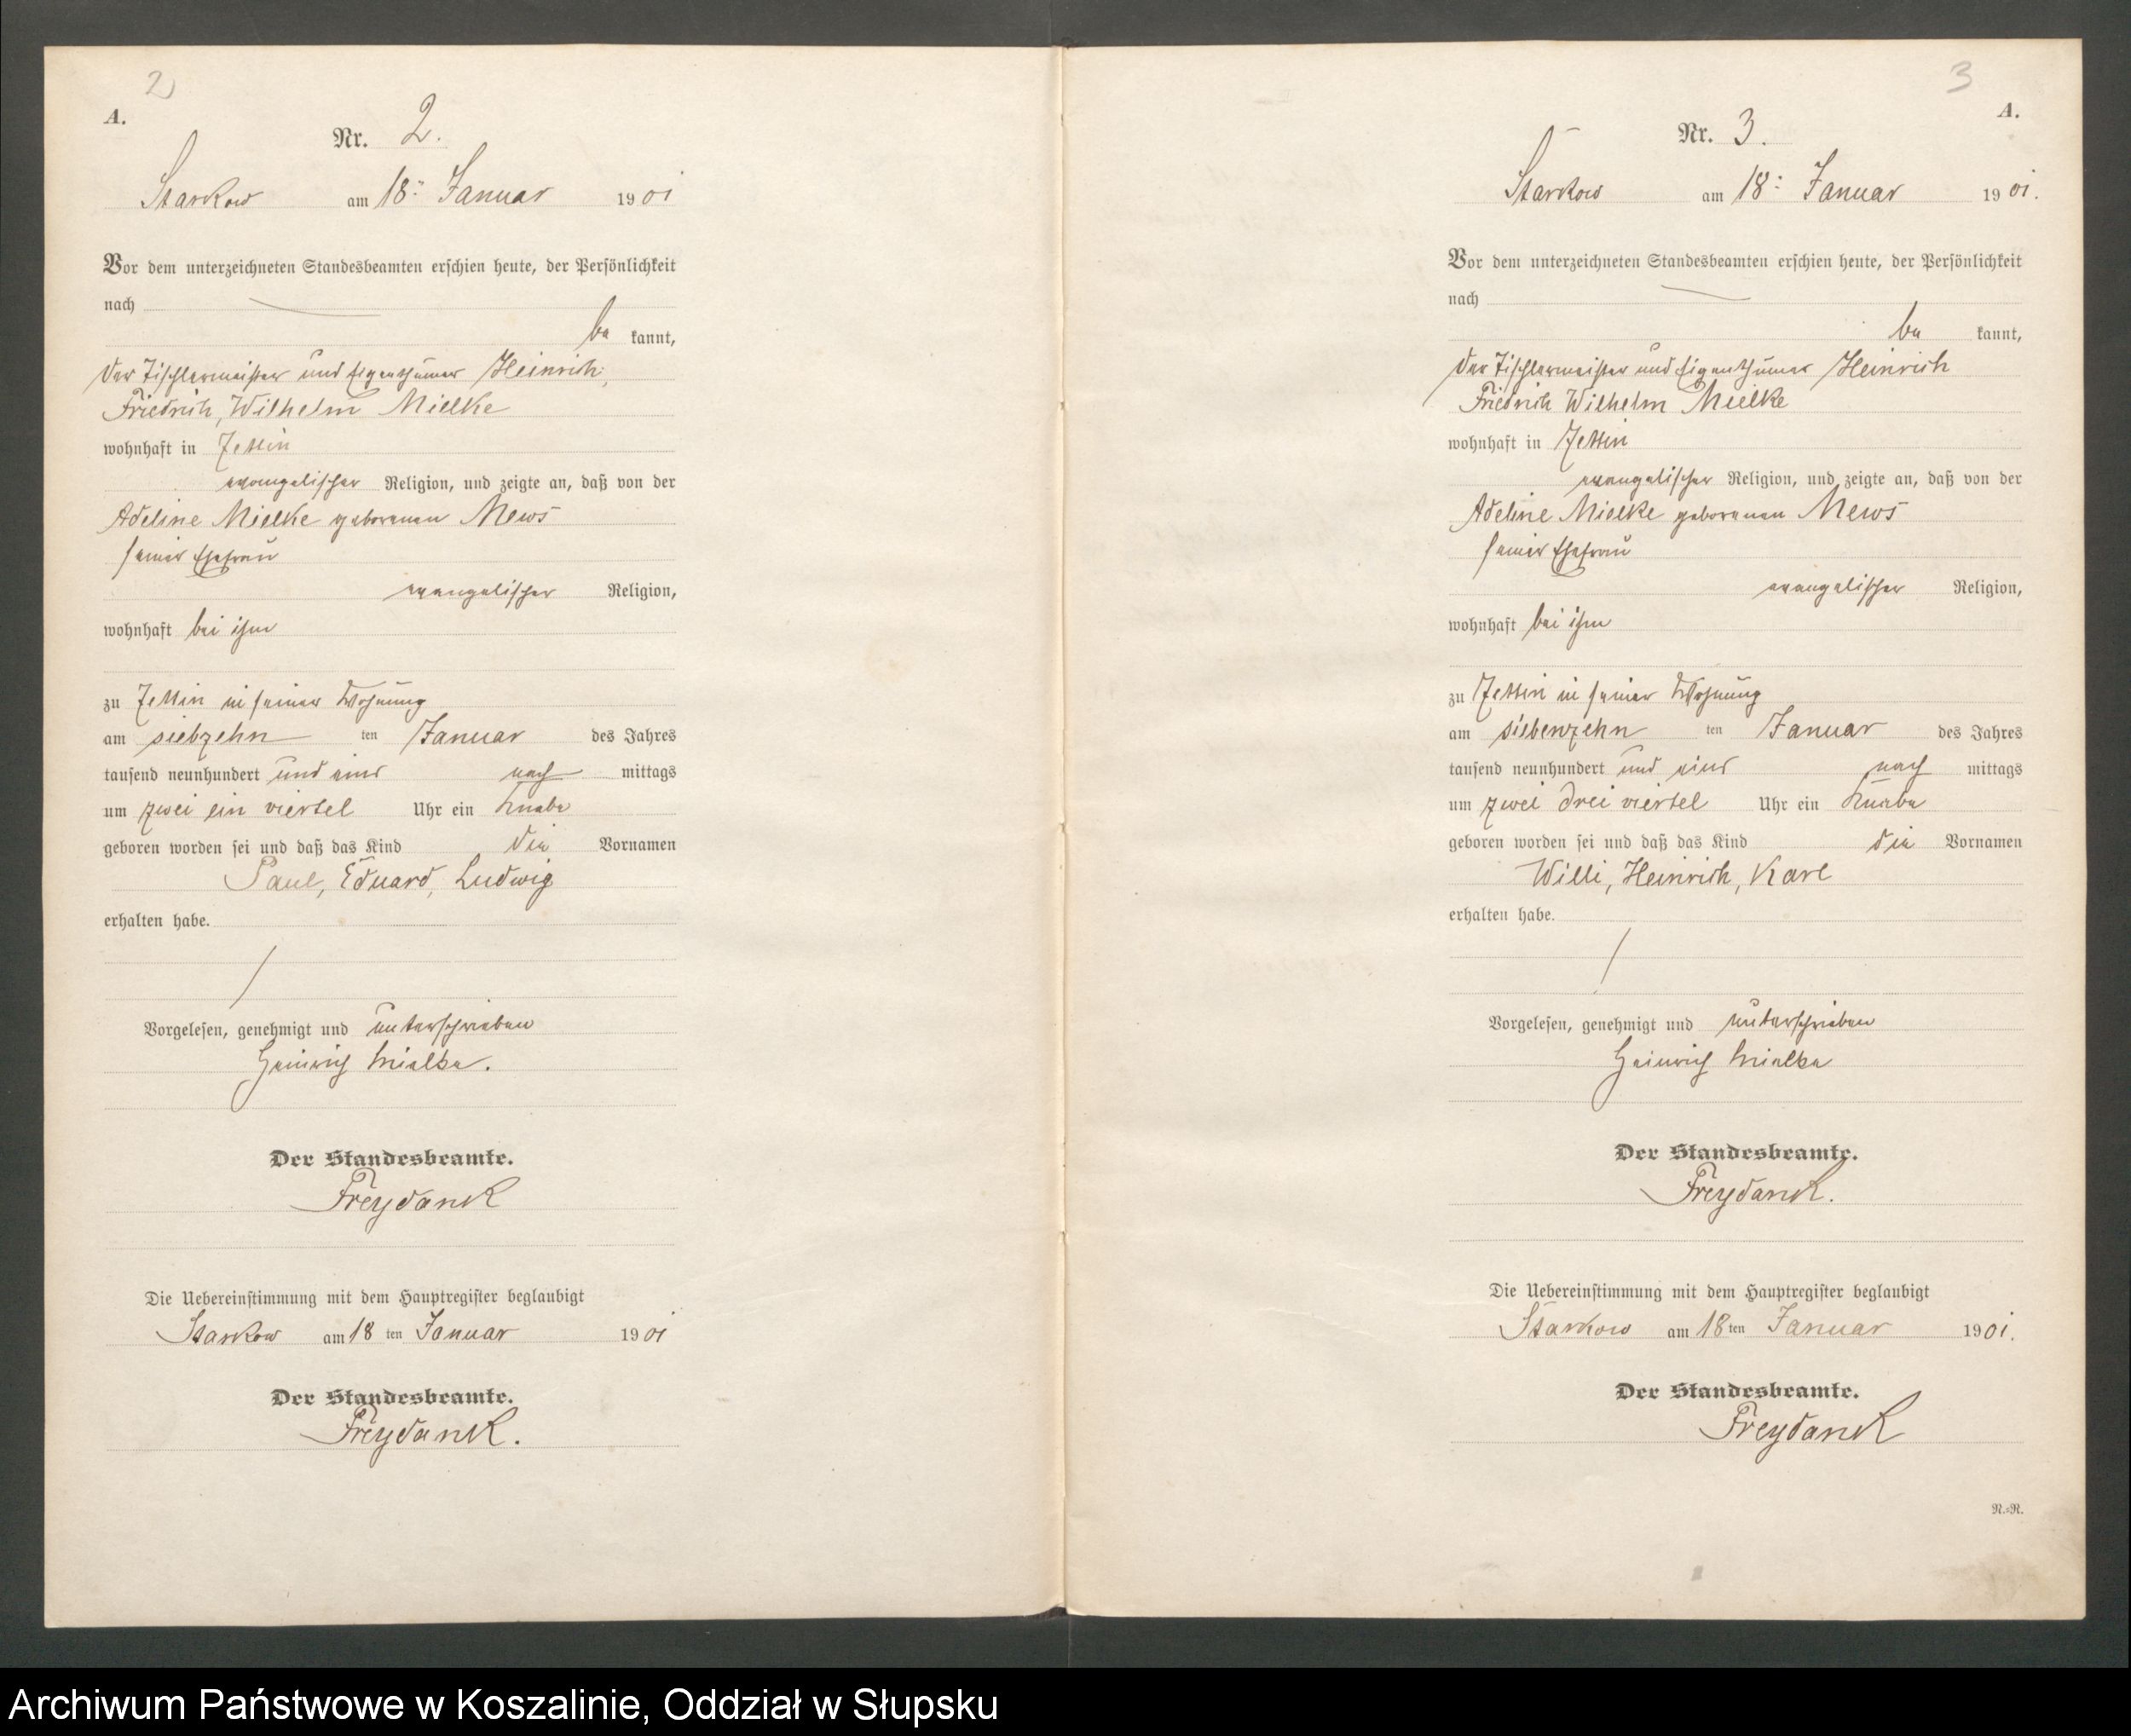 2
A.
Nr. 2.
Starkow am 18ᵗ Januar 1901
Vor dem unterzeichneten Standesbeamten erschien heute, der Persönlichkeit
nach
be kannt,
der Tischlermeister und Eigenthümer Heinrich,
Friedrich, Wilhelm Mielke
wohnhaft in Zettin
evangelischer Religion, und zeigte an, daß von der
Adeline Mielke geborenen Mews
seiner Ehefrau
evangelischer Religion,
wohnhaft bei ihm
zu Zettin in seiner Wohnung
am siebzehn ten Januar des Jahres
tausend neunhundert und eins nach mittags
um zwei ein viertel Uhr ein Knabe
geboren worden sei und daß das Kind die Vornamen
Paul, Eduard, Ludwig
erhalten habe.
Vorgelesen, genehmigt und unterschrieben
Heinrich Mielke.
Der Standesbeamte.
Freydank
Die Uebereinstimmung mit dem Hauptregister beglaubigt
Starkow am 18 ten Januar 1901
Der Standesbeamte.
Freydank.
3
A.
Nr. 3.
Starkow am 18ᵗ Januar 1901.
Vor dem unterzeichneten Standesbeamten erschien heute, der Persönlichkeit
nach
be kannt,
der Tischlermeister und Eigenthümer Heinrich
Friedrich Wilhelm Mielke
wohnhaft in Zettin
evangelischer Religion, und zeigte an, daß von der
Adeline Mielke geborenen Mews
seiner Ehefrau
evangelischer Religion,
wohnhaft bei ihm
zu Zettin in seiner Wohnung
am siebenzehn ten Januar des Jahres
tausend neunhundert und eins nach mittags
um zwei drei viertel Uhr ein Knabe
geboren worden sei und daß das Kind die Vornamen
Willi, Heinrich, Karl
erhalten habe.
Vorgelesen, genehmigt und unterschrieben
Heinrich Mielke
Der Standesbeamte.
Freydank.
Die Uebereinstimmung mit dem Hauptregister beglaubigt
Starkow am 18 ten Januar 1901.
Der Standesbeamte.
Freydank
R.=R.
Archiwum Państwowe w Koszalinie, Oddział w Słupsku